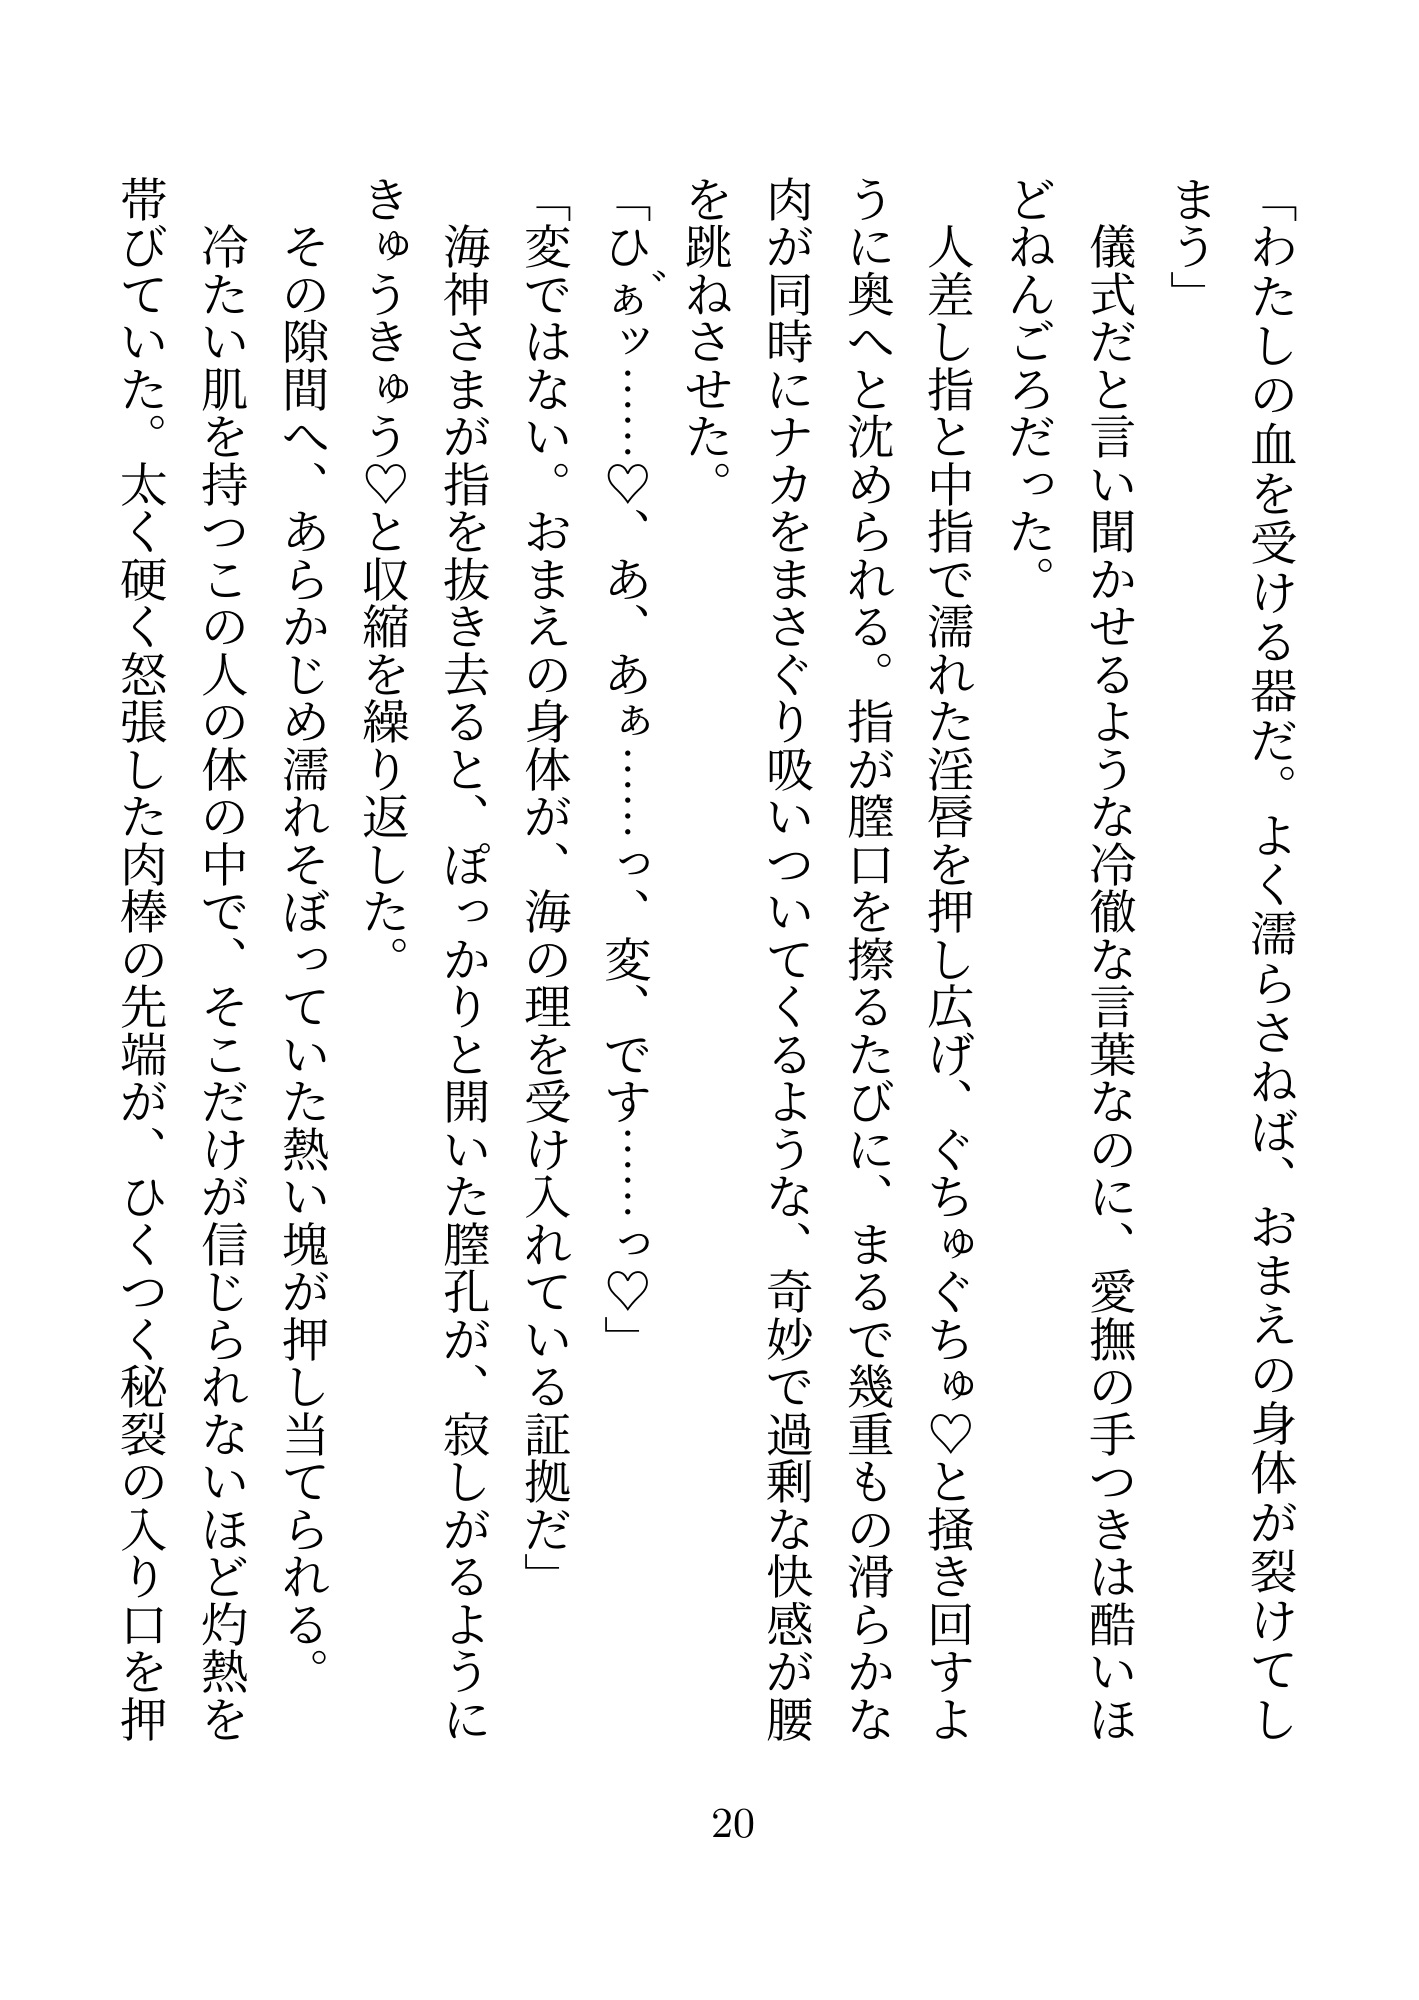 「わたしの血を受ける器だ。よく濡らさねば、おまえの身体が裂けてし
まう」
　儀式だと言い聞かせるような冷徹な言葉なのに、愛撫の手つきは酷いほ
どねんごろだった。
　人差し指と中指で濡れた淫唇を押し広げ、ぐちゅぐちゅ♡と掻き回すよ
うに奥へと沈められる。指が膣口を擦るたびに、まるで幾重もの滑らかな
肉が同時にナカをまさぐり吸いついてくるような、奇妙で過剰な快感が腰
を跳ねさせた。
「ひぁ゛ッ……♡、あ、あぁ……っ、変、です……っ♡」
「変ではない。おまえの身体が、海の理を受け入れている証拠だ」
　海神さまが指を抜き去ると、ぽっかりと開いた膣孔が、寂しがるように
きゅうきゅう♡と収縮を繰り返した。
　その隙間へ、あらかじめ濡れそぼっていた熱い塊が押し当てられる。
　冷たい肌を持つこの人の体の中で、そこだけが信じられないほど灼熱を
帯びていた。太く硬く怒張した肉棒の先端が、ひくつく秘裂の入り口を押
20